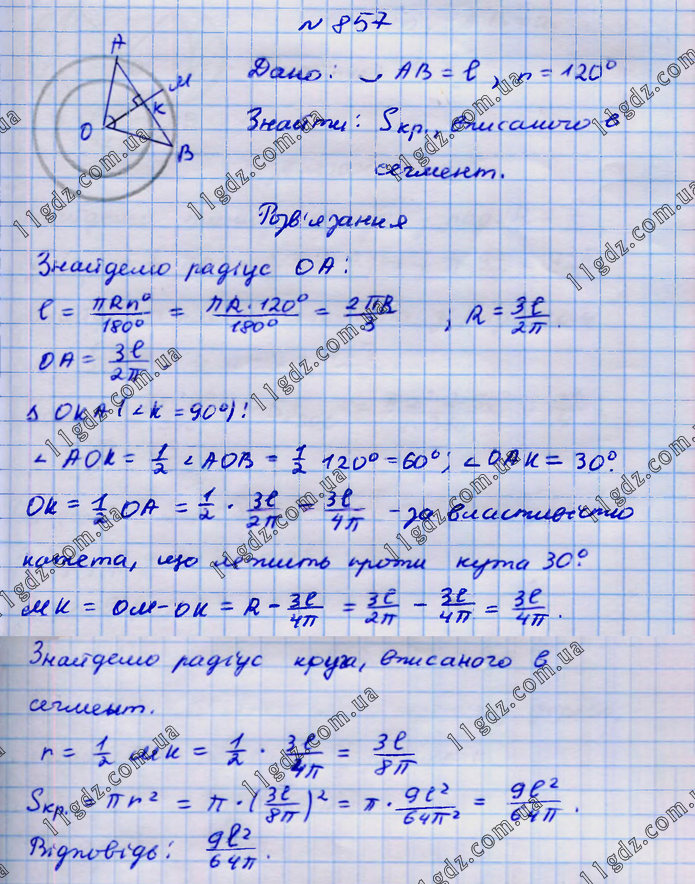 № 857
A
M
K
O
B
Дано: ◡ AB = l, n = 120°
Знайти: Sкр., вписаного в
сегмент.
Розв'язання
Знайдемо радіус OA:
l = πRn°/180° = πR·120°/180° = 2πR/3 ; R = 3l/2π.
OA = 3l/2π.
Δ OKA (∠K = 90°):
∠AOK = 1/2 ∠AOB = 1/2 120° = 60°; ∠OAK = 30°.
OK = 1/2 OA = 1/2 · 3l/2π = 3l/4π - за властивістю
катета, що лежить проти кута 30°.
MK = OM - OK = R - 3l/4π = 3l/2π - 3l/4π = 3l/4π.
Знайдемо радіус круга, вписаного в
сегмент.
r = 1/2 MK = 1/2 · 3l/4π = 3l/8π
Sкр. = πr² = π·(3l/8π)² = π·9l²/64π² = 9l²/64π.
Відповідь: 9l²/64π.
11gdz.com.ua